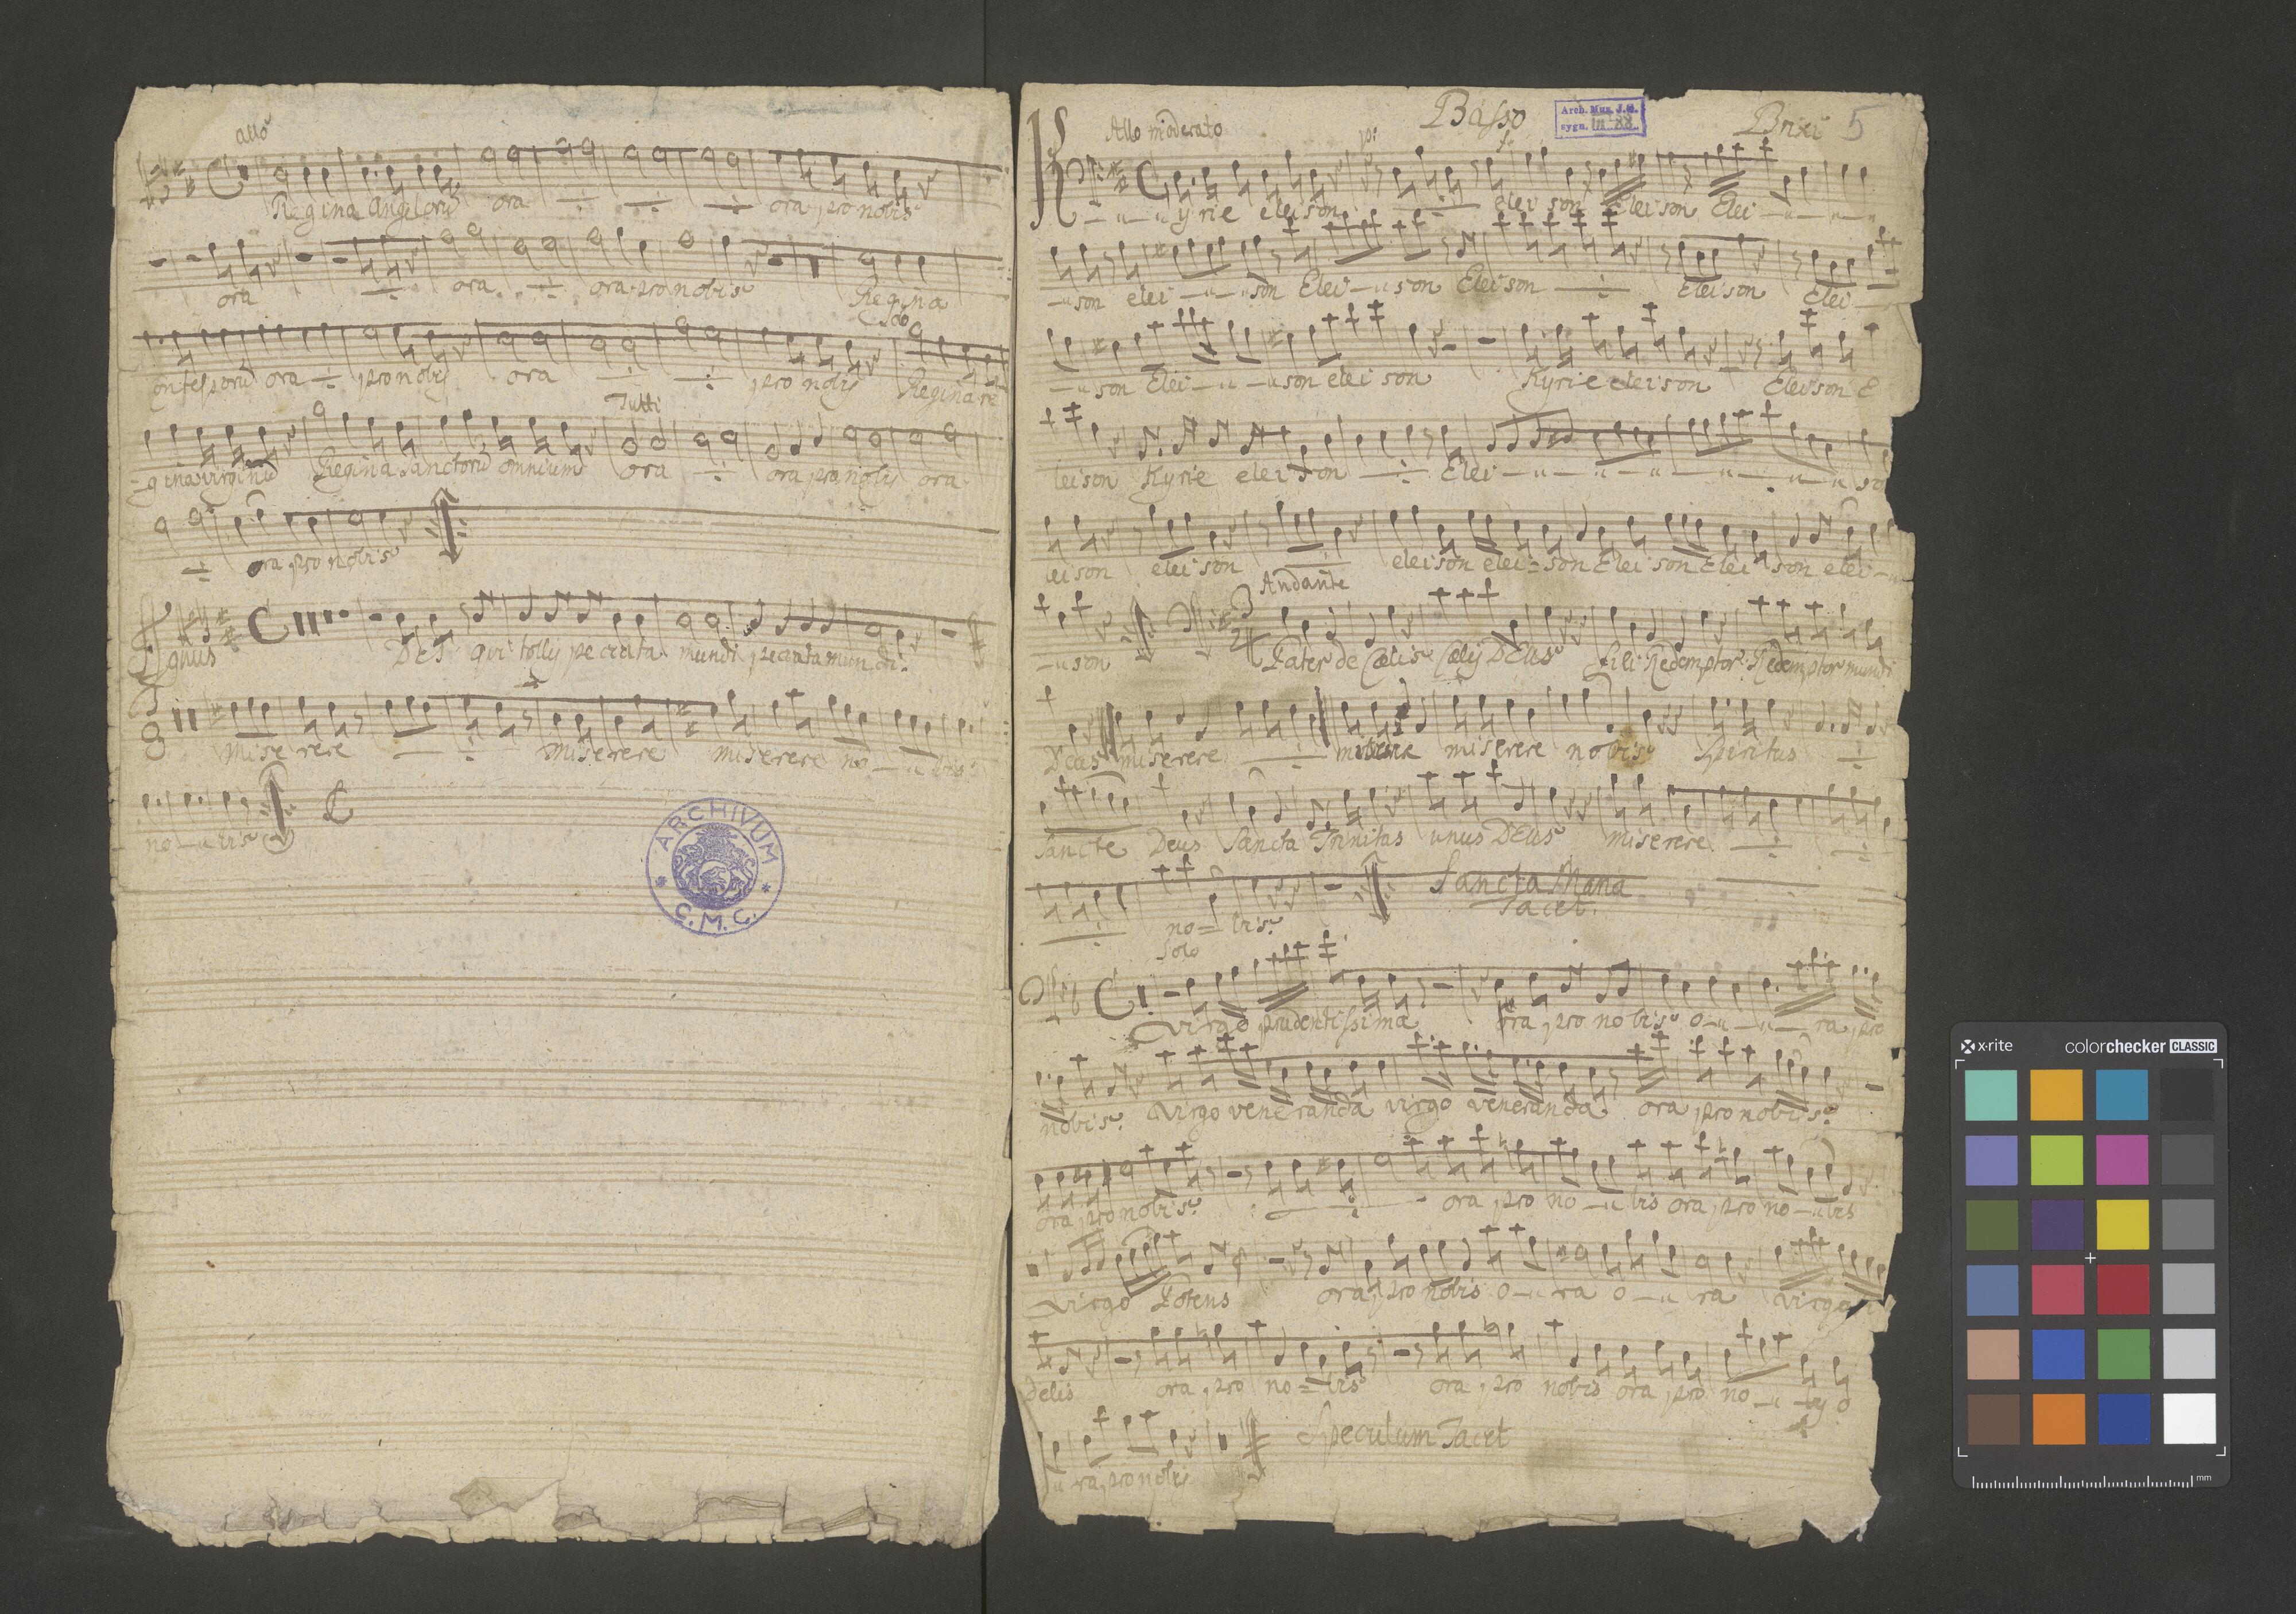 allo
Regina Angelorũ ora ora pro nobis
ora ora ora pro nobis Regina
Solo
Confessorũ ora pro nobis ora pro nobis Regina re
Tutti
-gina virginũ Regina Sanctorũ omnium ora ora pro nobis ora
ora pro nobis
Agnus DEI qui tollis peccata mundi peccata mundi.
Miserere Miserere Miserere no-
no- bis
ARCHIVUM
C.M.C.
Basso
Arch. Muz. J.G.
sygn.
Brixi 5
Allo moderato
Kyrie eleison eleison Eleison Elei
-son elei-son Elei-son Eleison Eleison Elei
-son Elei-son eleison Kyrie eleison Eleison E
leison Kyrie eleison Elei
leison eleison eleison elei=son Eleison Elei son elei-
Andante
-son Pater de Cælis Cælis DEus Fili Redemptor Redemptor mundi
Deus miserere miserere miserere nobis Spiritus
Sancte Deus Sancta Trinitas unus DEus miserere
no= bis Sancta Maria
Tacet.
Solo
Virgo prudentissima ora pro nobis o-ra pro
nobis. Virgo veneranda virgo veneranda ora pro nobis.
ora pro nobis. ora pro no-bis ora pro no-bis
Virgo Potens ora pro nobis o-ra o-ra virgo
delis ora pro no=bis ora pro nobis ora pro no- o
ra pro nobis Speculum Tacet
x·rite colorchecker CLASSIC
mm